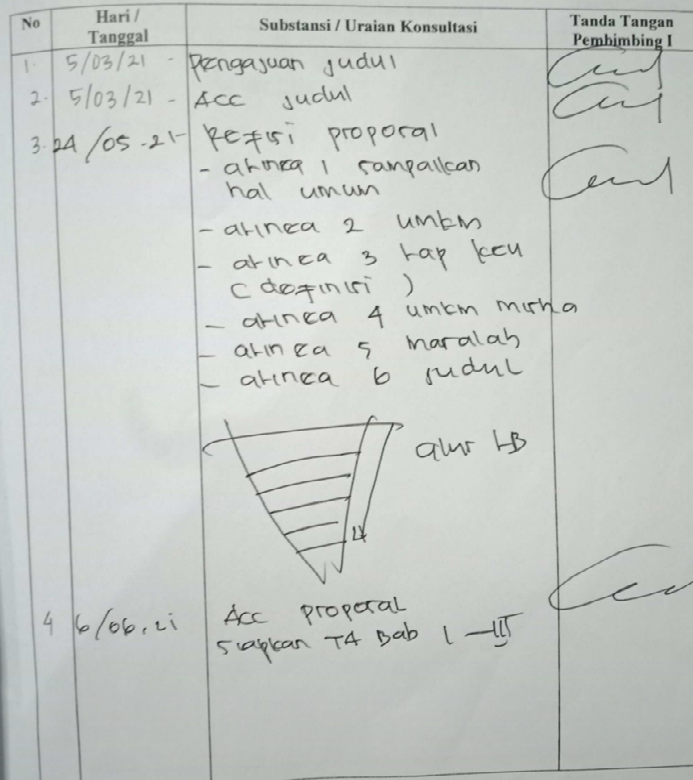 No Hari / Tanggal Substansi / Uraian Konsultasi Tanda Tangan Pembimbing I
1. 5/03/21 - Pengajuan judul
2. 5/03/21 - Acc judul
3. 24/05-21- Refisi proposal
- alinea 1 sampaikan
hal umum
- alinea 2 umkm
- alinea 3 lap keu
(definisi)
- alinea 4 umkm
- alinea 5 masalah
- alinea 6 judul
alur LB
4 6/06.21 Acc proposal
siapkan T4 Bab I - III